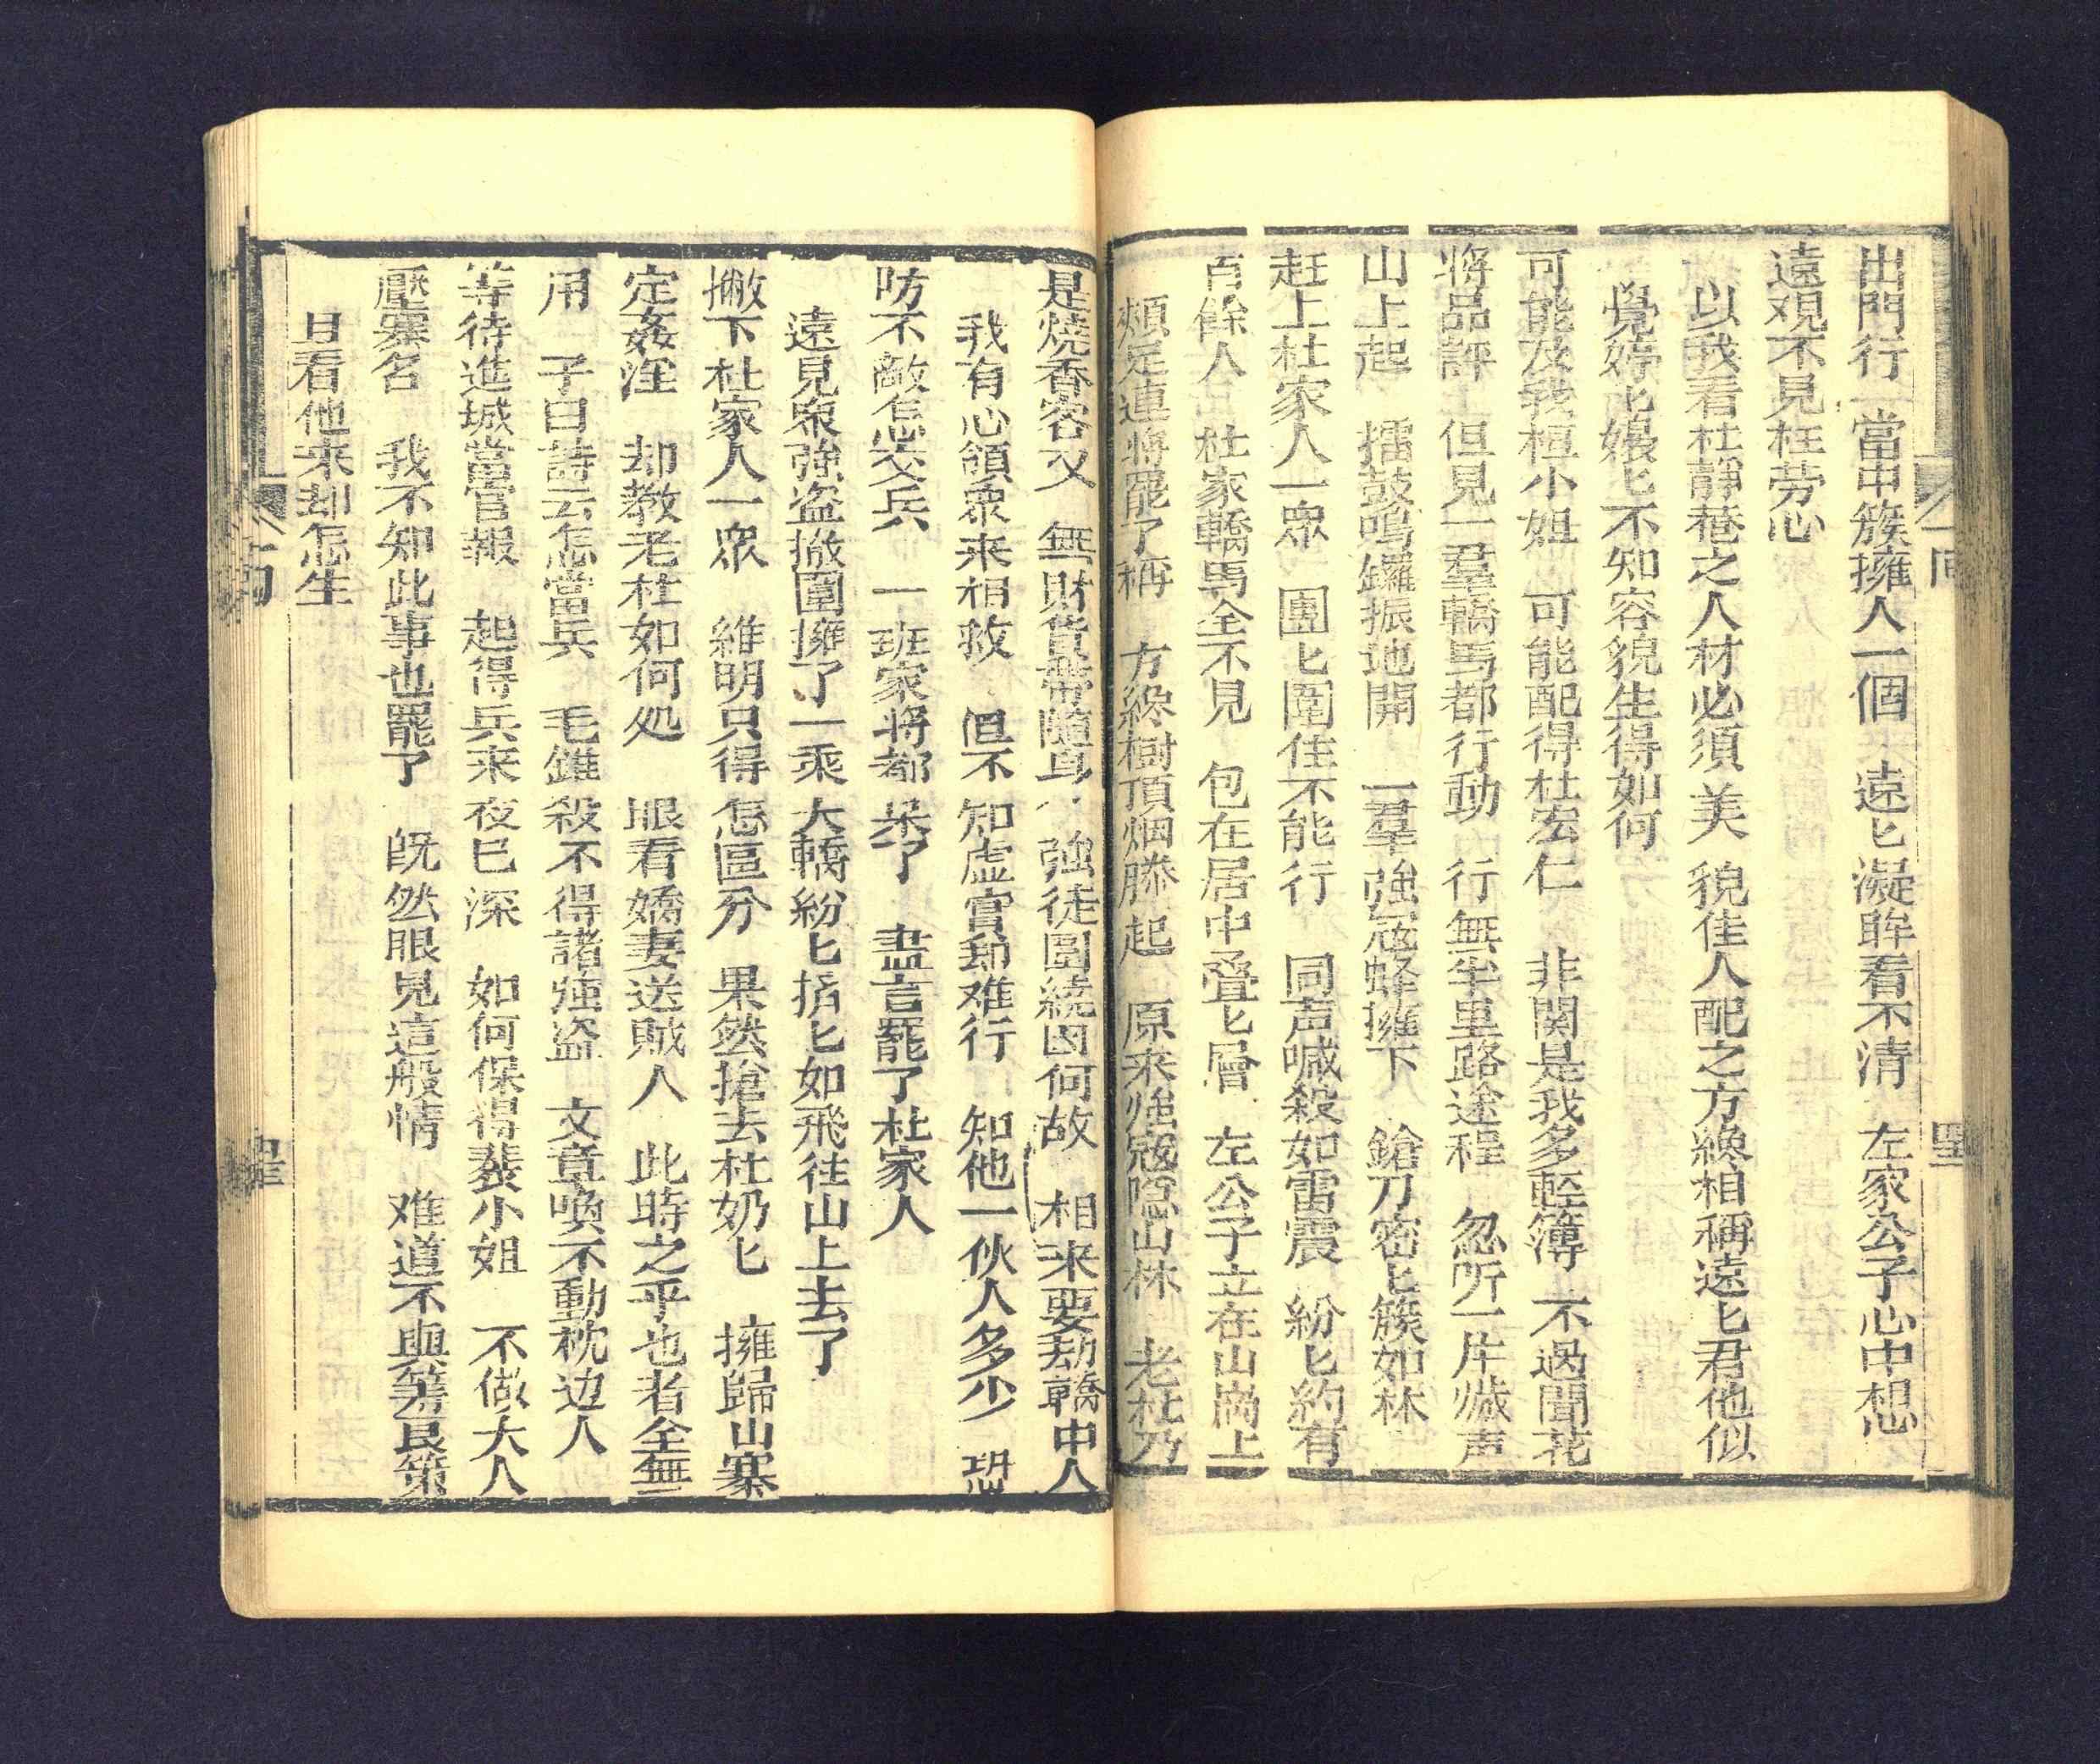 出門行 當中簇擁人一個 遠匕凝眸看不清 左家公子心中想
遠观不見枉劳心
以我看杜靜菴之人材必須美 貌佳人配之方纔相稱遠匕君他似
覺婷匕嬝匕不知容貌生得如何
可能及我桓小姐 可能配得杜宏仁 非関是我多輕簿 不過聞花
將品評 但見一羣轎馬都行動 行無半里路途程 忽听一片 声
山上起 擂鼓鳴鑼振地開 一羣強寇蜂擁下 鎗刀密匕簇如林
赶上杜家人一眾 團匕圍住不能行 同声喊殺如雷震 紛匕約有
百餘人 杜家轎馬全不見 包在居中叠匕層 左公子立在山崗上
頻足連將罷了稱 方纔樹頂烟滕起 原来強寇隐山林 老杜乃
是燒香客又 無財貨帶隨身 強徒圍繞因何故 相来要劫轎中人
我有心領衆来相救 但不知虛實却难行 知他一伙人多少 恐
防不敵怎 兵 一班家將都呆了 盡言罷了杜家人
遠見衆強盗撤圍擁了一乘大轎紛匕擠匕如飛往山上去了
撇下杜家人一眾 維明只得怎區分 果然搶去杜奶匕 擁歸山寨
定姦淫 却教老杜如何処 眼看嬌妻送賊人 此時之乎也者全無
用 子曰詩云怎當兵 毛錐殺不得諸強盗 文章喚不動枕边人
等待進城當官報 起得兵来夜已深 如何保得裴小姐 不做大人
壓寨名 我不知此事也罷了 既然眼見這般情 难道不與籌良策
且看他来却怎生